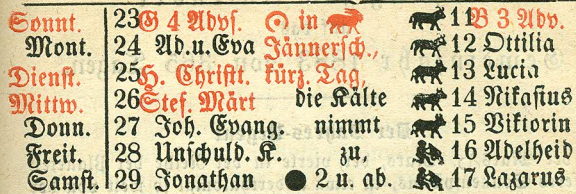 Sonnt. 23 G 4 Advs. in 11 B 3 Adv.
Mont. 24 Ad. u. Eva Jännersch., 12 Ottilia
Dienst. 25 H. Christt. kürz. Tag, 13 Lucia
Mittw. 26 Stef. Märt die Kälte 14 Nikasius
Donn. 27 Joh. Evang. nimmt 15 Viktorin
Freit. 28 Unschuld. K. zu. 16 Adelheid
Samst. 29 Jonathan 2 u. ab. 17 Lazarus